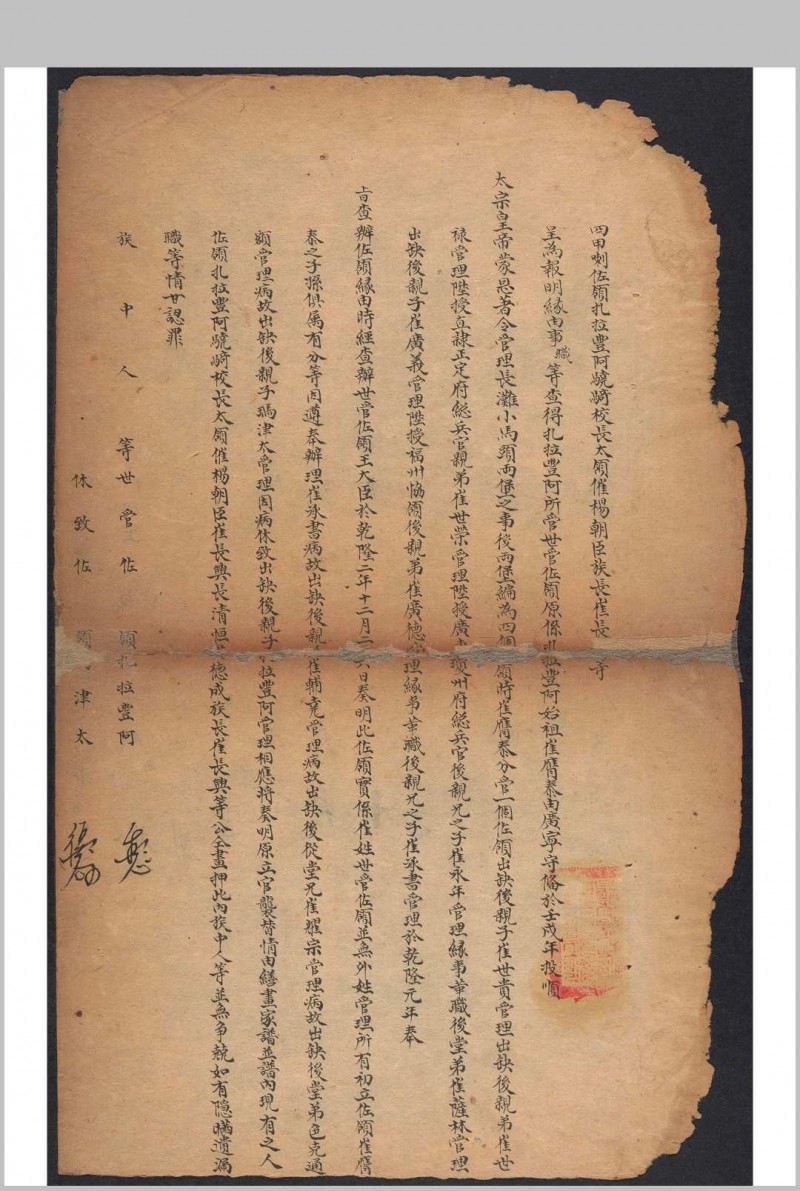 四甲喇佐領扎拉豐阿驍騎校長太領催楊朝臣族長崔長等
呈為報明緣由事職等查得扎拉豐阿所管世管佐領原係扎拉豐阿始祖崔膺泰由廣寧守備於壬戌年投順
太宗皇帝蒙恩著令管理長灘小馬頭兩堡之事後兩堡編為四個領時崔膺泰分管一個佐領出缺後親子崔世貴管理出缺後親弟崔世
祿管理陞授直隸正定府總兵官親弟崔世榮管理陞授廣瓊州府總兵官後親兄之子崔永年管理緣事革職後堂弟崔薩林管理
出缺後親子崔廣義管理陞授福州協領後親弟崔廣德理緣事革職後親兄之子崔泳書管理於乾隆元年奉
旨查辦佐領緣由時經查辦世管佐領王大臣於乾隆二年十二月二六日奏明此佐領實係崔姓世管佐領並無外姓管理所有初立佐領崔膺
泰之子孫俱屬有分等因遵奉辦理崔泳書病故出缺後親崔輔堯管理病故出缺後從堂兄崔耀宗管理病故出缺後堂弟色克通
額管理病故出缺後親子瑪津太管理因病休致出缺後親子拉豐阿管理相應將奏明原立官襲替情由繕畫家譜並譜內現有之人
佐領扎拉豐阿驍騎校長太領催楊朝臣崔長興長清恒德成族長崔長興等公仝畫押此內族中人等並無爭競如有隱瞞遺漏
職等情甘認罪
族中人等世管佐領扎拉豐阿
休致佐領津太